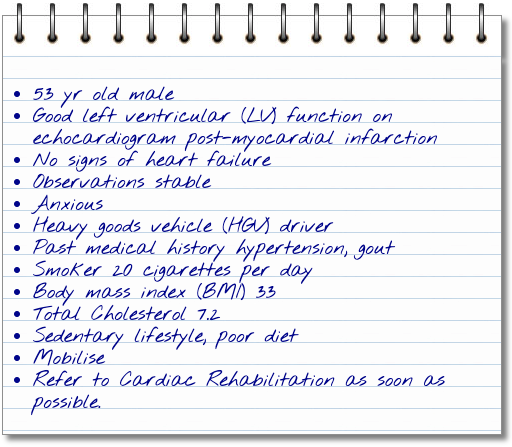 • 53 yr old male
• Good left ventricular (LV) function on
echocardiogram post-myocardial infarction
• No signs of heart failure
• Observations stable
• Anxious
• Heavy goods vehicle (HGV) driver
• Past medical history hypertension, gout
• Smoker 20 cigarettes per day
• Body mass index (BMI) 33
• Total Cholesterol 7.2
• Sedentary lifestyle, poor diet
• Mobilise
• Refer to Cardiac Rehabilitation as soon as
possible.